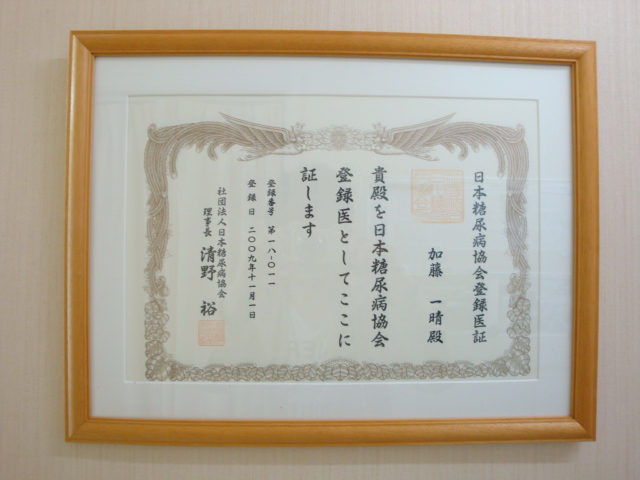 日本糖尿病協会登録医証
加藤 一晴殿
貴殿を日本糖尿病協会
登録医としてここに
証します
登録番号 第一八-〇一一
登録日 二〇〇九年十一月一日
社団法人日本糖尿病協会
理事長 清野 裕